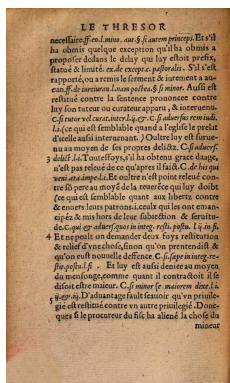 LE THRESOR
necessaire.ff.eo.l.mino. aut. §. si autem princeps. Et s'il
ha obmis quelque exception qu'il ha obmis a
proposer dedans le delay qui luy estoit prefix,
statué & limité. ex de except.c. pastoralis. S'il s'est
rapporté, ou a remis le serment & iurement a au-
cun.ff.de iureiuran.l.nam postea.§. si minor. Aussi est
restitué contre la sentence prononcee contre
luy son tuteur ou curateur appart, & interuenti.
C. si tutor vel curat. inter. l.ij. & C. si aduersus rem iudi.
l.i. (ce qui est semblable quand a l'eglise le prelat
d'icelle aussi interuenant.) Oultre luy est surue-
nu au moyen de ses propres delictz. C. si aduers.
3 delict.l.i. Toutesfoys, s'il ha obtenu grace daage,
n'est pas releué de ce qu'apres il faict. C. de his qui
veni.æta.impe.l.i. Et oultre n'est point releué con-
tre sō pere au moyē de la reuerēce qui luy doibt
(ce qui est semblable quant aux libertz contre
& enuers leurs patrons.i.ceulx qui les ont eman-
cipēz & mis hors de leur subiection & seruitu-
de. C. qui & aduers. quos in integ. resti. possu. l.ij. in fi.
4 Et ne peult on demander deux foys restitution
& relief d'vne chose, sinon qu'on prentendist &
qu'on eust nouuelle deffence. C. si sæpe in integ. re-
stu. postu. l. fi. . Et luy est aussi deniee au moyen
du mensonge, comme quant il contractoit il se
disoit estre maieur. C. si minor se maiorem dixe. l. i.
ij. & iij. D'auantage fault sçauoir qu'vn priuile-
gié est restitué contre vn autre priuilegié. Donc-
ques si le procureur du fisc ha aliené la chose du
mineur